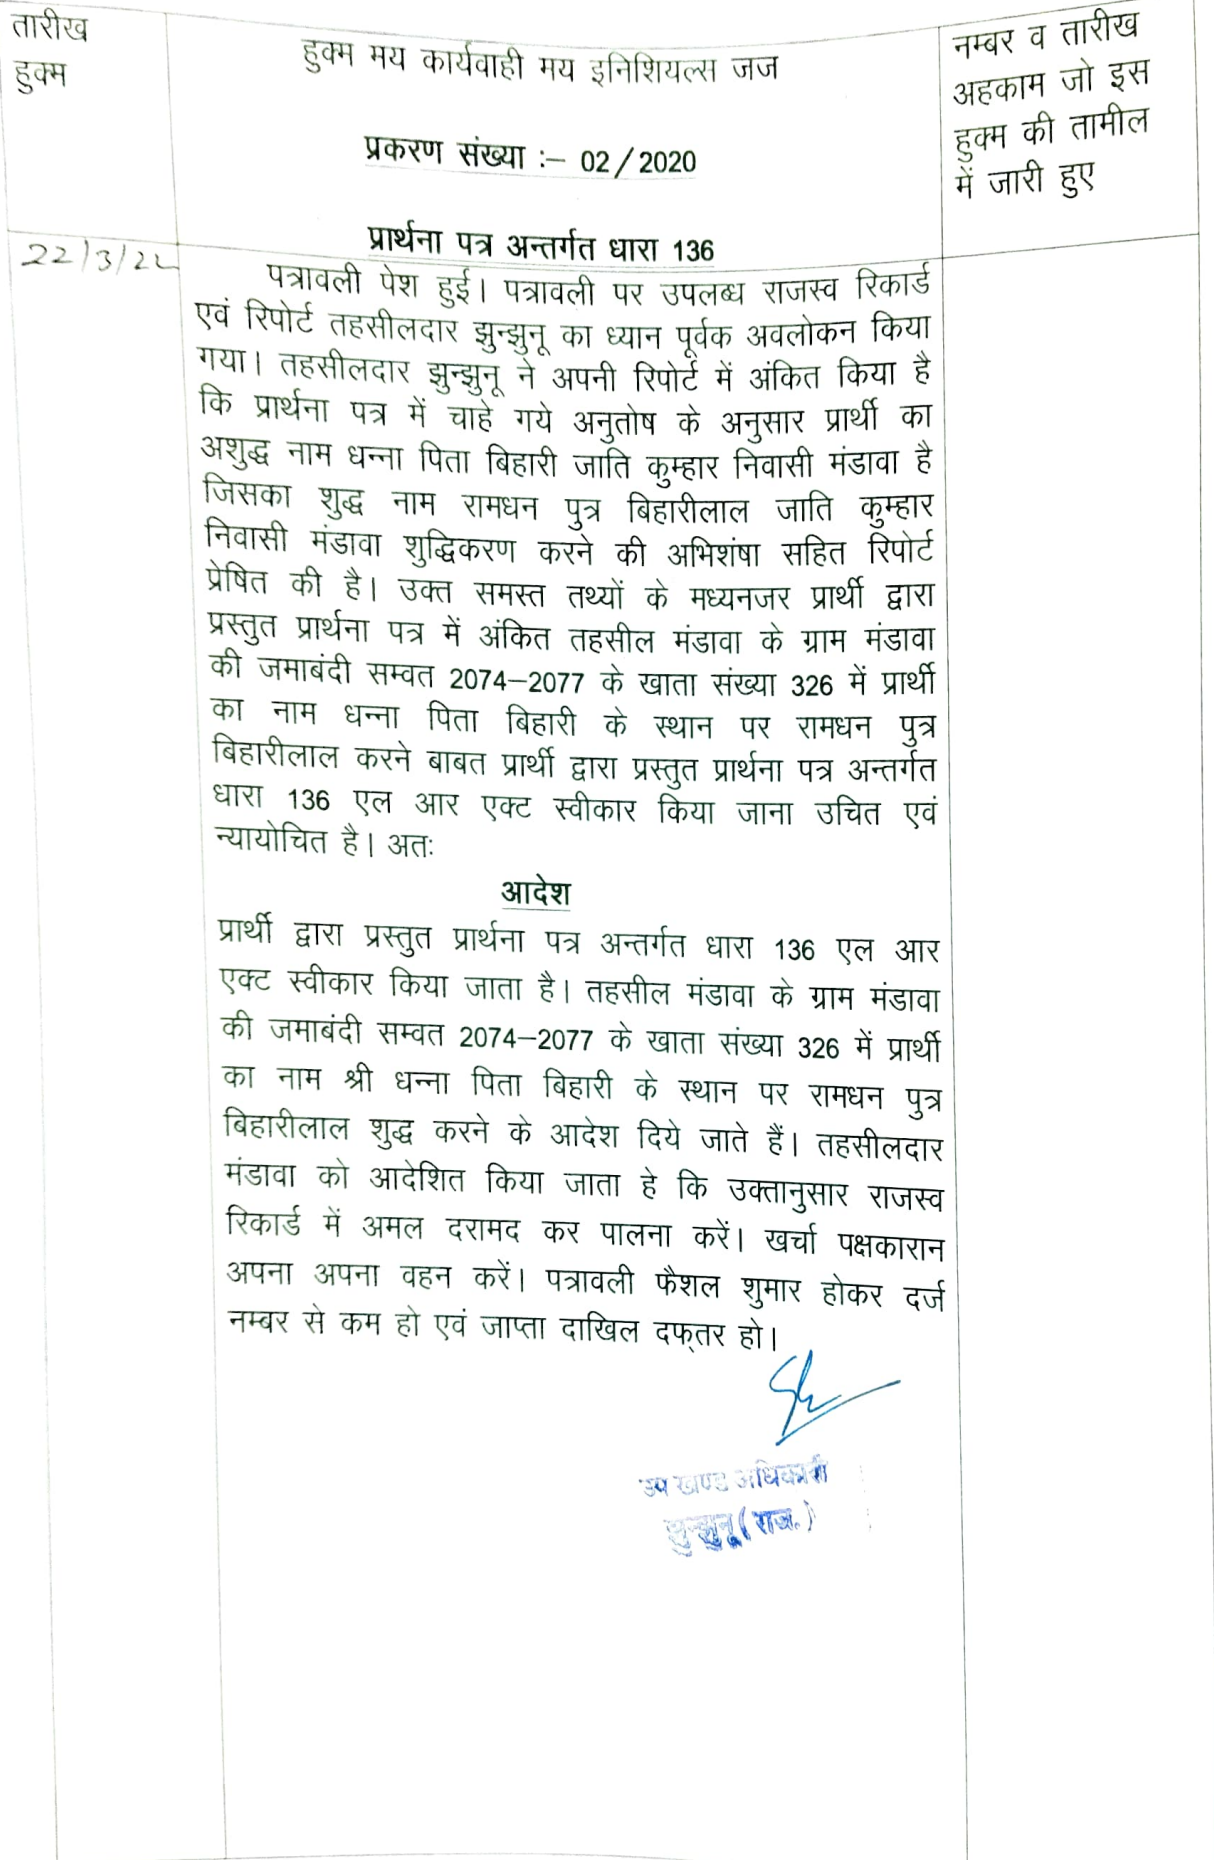 तारीख
हुक्म
हुक्म मय कार्यवाही मय इनिशियल्स जज
नम्बर व तारीख
अहकाम जो इस
हुक्म की तामील
में जारी हुए
प्रकरण संख्या :– 02/2020
प्रार्थना पत्र अन्तर्गत धारा 136
22/3/22
पत्रावली पेश हुई। पत्रावली पर उपलब्ध राजस्व रिकार्ड
एवं रिपोर्ट तहसीलदार झुन्झुनू का ध्यान पूर्वक अवलोकन किया
गया। तहसीलदार झुन्झुनू ने अपनी रिपोर्ट में अंकित किया है
कि प्रार्थना पत्र में चाहे गये अनुतोष के अनुसार प्रार्थी का
अशुद्ध नाम धन्ना पिता बिहारी जाति कुम्हार निवासी मंडावा है
जिसका शुद्ध नाम रामधन पुत्र बिहारीलाल जाति कुम्हार
निवासी मंडावा शुद्धिकरण करने की अभिशंषा सहित रिपोर्ट
प्रेषित की है। उक्त समस्त तथ्यों के मध्यनजर प्रार्थी द्वारा
प्रस्तुत प्रार्थना पत्र में अंकित तहसील मंडावा के ग्राम मंडावा
की जमाबंदी सम्वत 2074–2077 के खाता संख्या 326 में प्रार्थी
का नाम धन्ना पिता बिहारी के स्थान पर रामधन पुत्र
बिहारीलाल करने बाबत प्रार्थी द्वारा प्रस्तुत प्रार्थना पत्र अन्तर्गत
धारा 136 एल आर एक्ट स्वीकार किया जाना उचित एवं
न्यायोचित है। अतः
आदेश
प्रार्थी द्वारा प्रस्तुत प्रार्थना पत्र अन्तर्गत धारा 136 एल आर
एक्ट स्वीकार किया जाता है। तहसील मंडावा के ग्राम मंडावा
की जमाबंदी सम्वत 2074–2077 के खाता संख्या 326 में प्रार्थी
का नाम श्री धन्ना पिता बिहारी के स्थान पर रामधन पुत्र
बिहारीलाल शुद्ध करने के आदेश दिये जाते हैं। तहसीलदार
मंडावा को आदेशित किया जाता हे कि उक्तानुसार राजस्व
रिकार्ड में अमल दरामद कर पालना करें। खर्चा पक्षकारान
अपना अपना वहन करें। पत्रावली फैशल शुमार होकर दर्ज
नम्बर से कम हो एवं जाप्ता दाखिल दफ्तर हो।
उप खण्ड अधिकारी
झुन्झुनू (राज.)